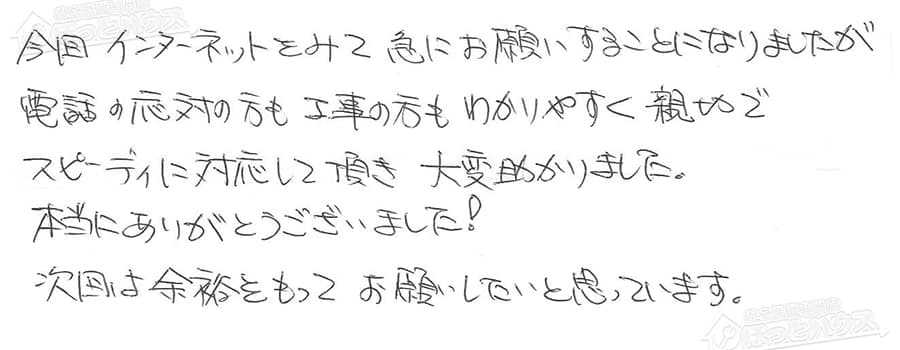 今回 インターネットをみて 急にお願いすることになりましたが
電話の応対の方も 工事の方も わかりやすく 親切で
スピーディに対応して頂き 大変助かりました。
本当にありがとうございました!
次回は余裕をもって お願いしたいと思っています。
ほっとハウス